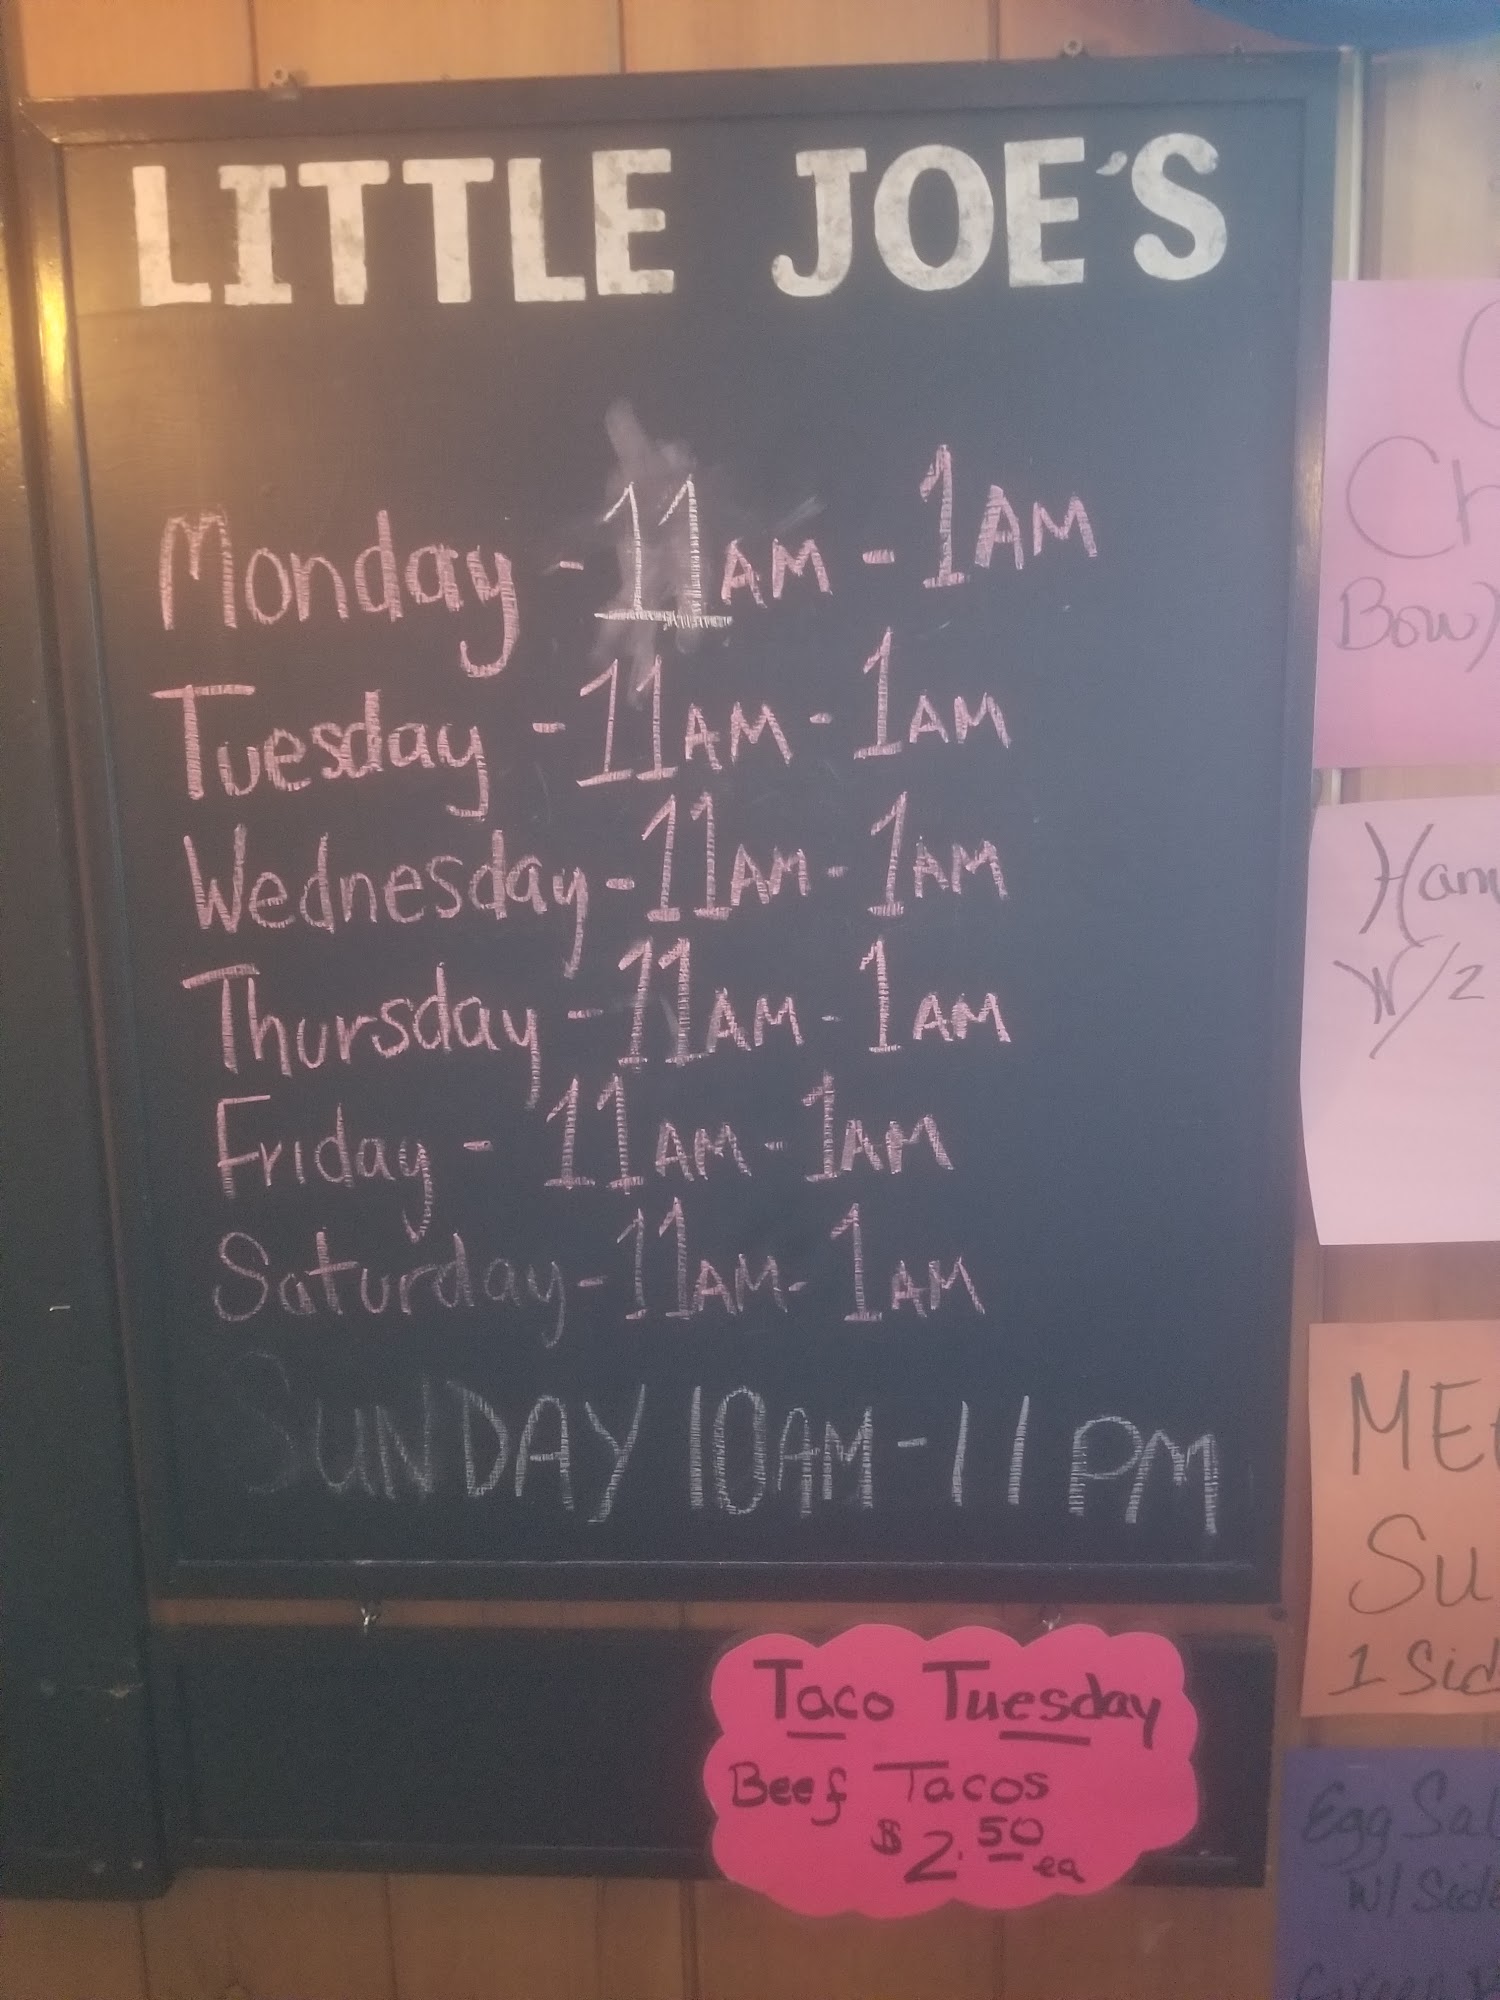 LITTLE JOE'S
Monday - 11AM - 1AM
Tuesday - 11AM - 1AM
Wednesday - 11AM - 1AM
Thursday - 11AM - 1AM
Friday - 11AM - 1AM
Saturday - 11AM - 1AM
SUNDAY 10AM - 11PM
Taco Tuesday
Beef Tacos
$2.50 ea
Bowl
W/2
1 Sid
Egg Sal
W/ Side